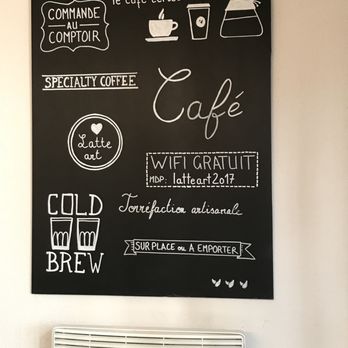 COMMANDE
AU
COMPTOIR
le café
SPECIALTY COFFEE
Café
Latte
art
WIFI GRATUIT
MDP: latteart2017
COLD
BREW
Torréfaction artisanale
SUR PLACE OU A EMPORTER